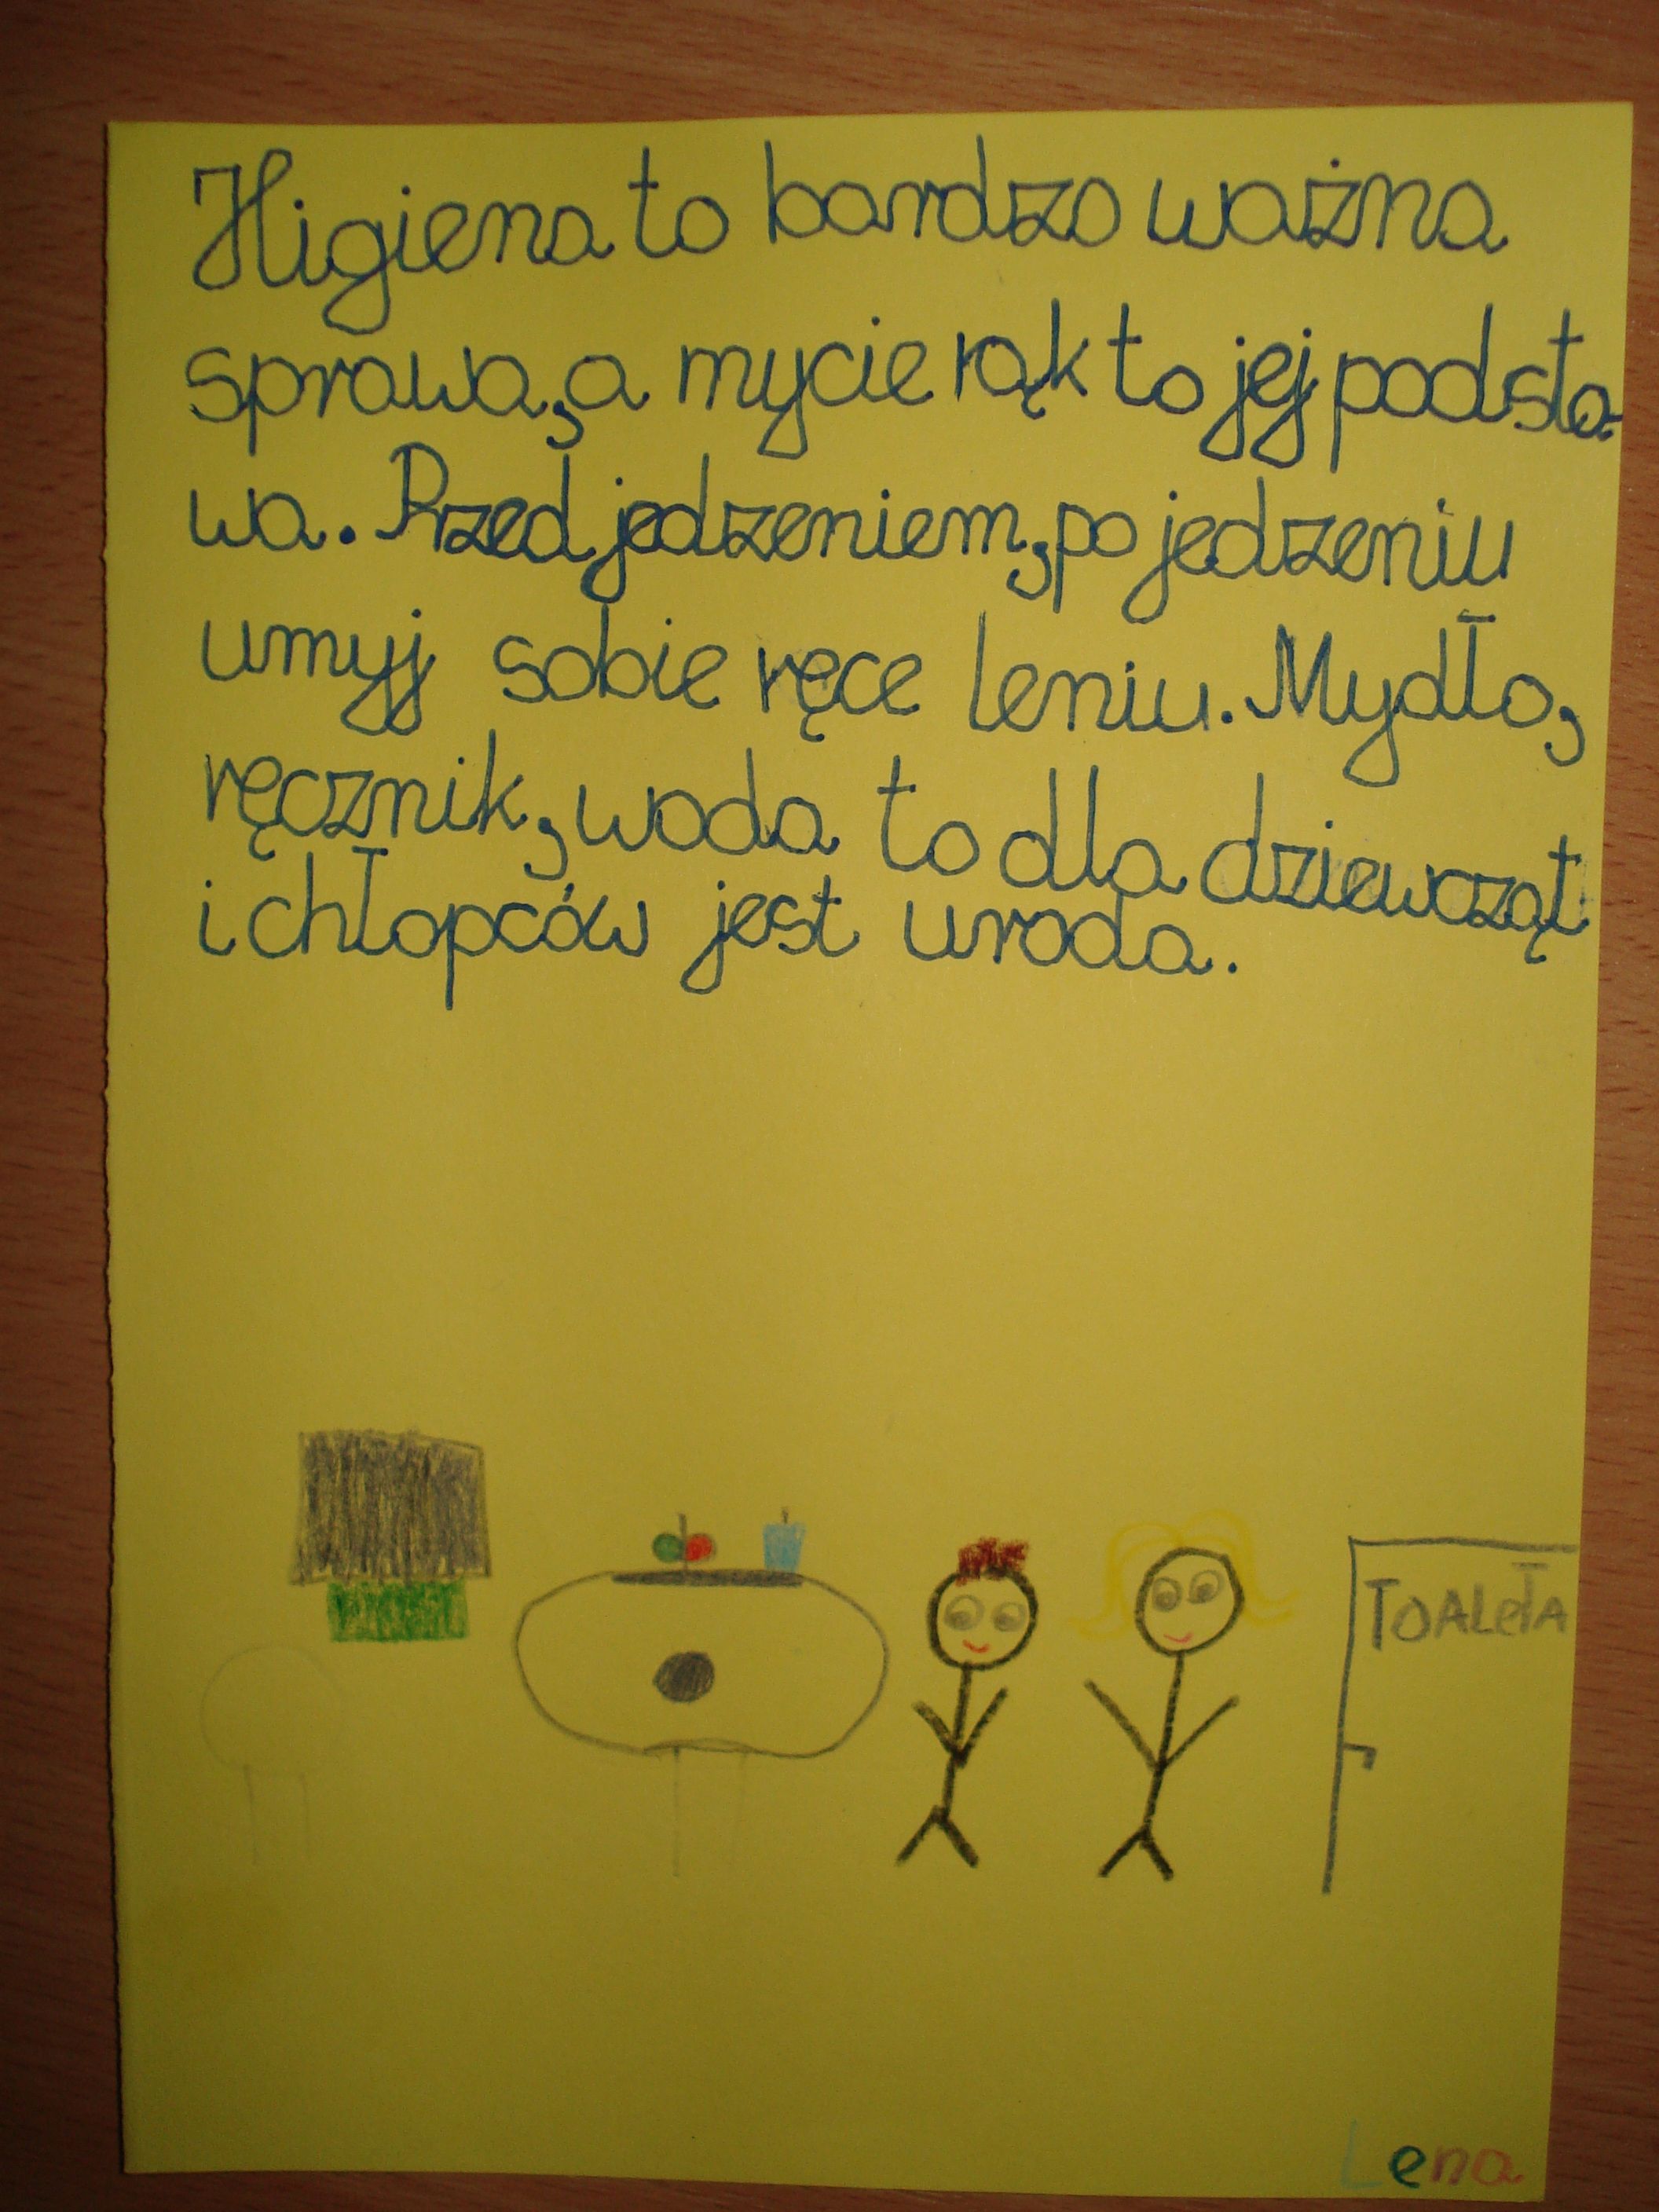 Higiena to bardzo ważna
sprawa, a mycie rąk to jej podsta-
wa. Przed jedzeniem, po jedzeniu
umyj sobie ręce leniu. Mydło,
ręcznik, woda to dla dziewcząt
i chłopców jest uroda.
TOALeTA
Lena